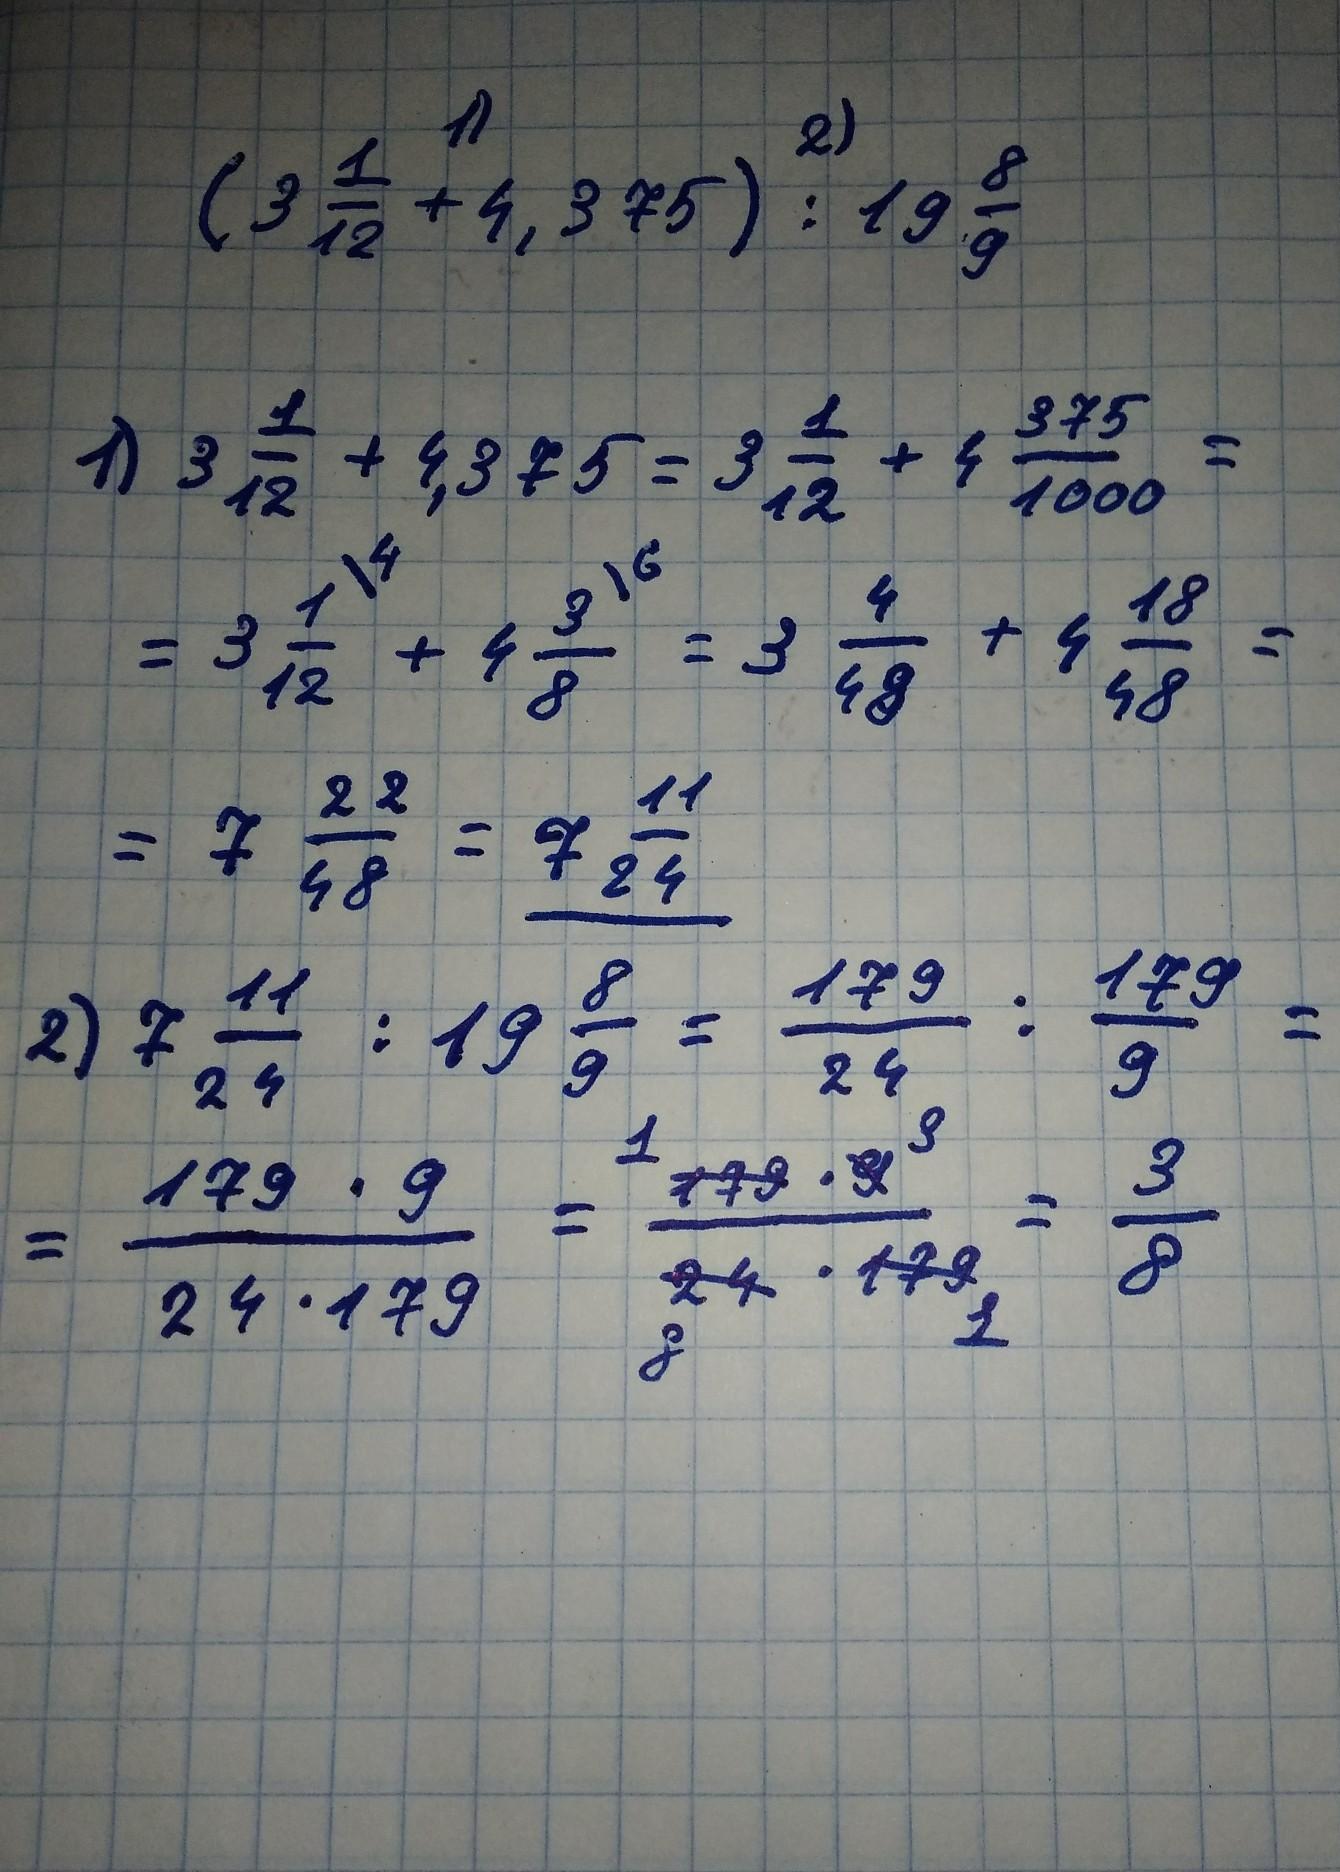 1) 2)
(3 1/12 + 4,375) : 19 8/9
1) 3 1/12 + 4,375 = 3 1/12 + 4 375/1000 =
= 3 1/12 \4 + 4 3/8 \6 = 3 4/48 + 4 18/48 =
= 7 22/48 = 7 11/24
2) 7 11/24 : 19 8/9 = 179/24 : 179/9 =
= 179 · 9 / 24 · 179 = 1 179 · 9 3 / 8 24 · 179 1 = 3/8